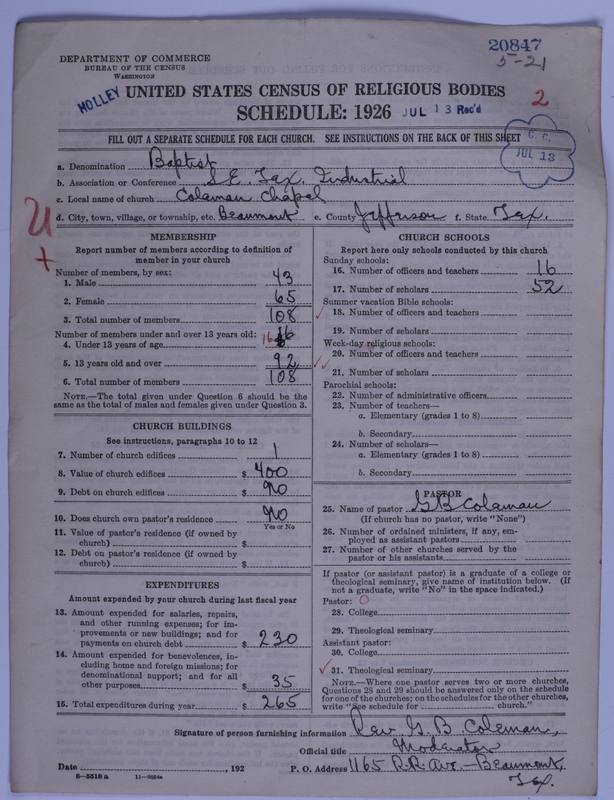 20847
5-21
DEPARTMENT OF COMMERCE
BUREAU OF THE CENSUS
WASHINGTON
HOLLEY
UNITED STATES CENSUS OF RELIGIOUS BODIES
2
SCHEDULE: 1926
JUL 13 Rec'd
FILL OUT A SEPARATE SCHEDULE FOR EACH CHURCH. SEE INSTRUCTIONS ON THE BACK OF THIS SHEET
C. C.
JUL 13
a. Denomination Baptist
b. Association or Conference S.E. Tax. Industrial
c. Local name of church Colaman Chapel
d. City, town, village, or township, etc. Beaumont e. County Jefferson f. State Tex.
MEMBERSHIP
Report number of members according to definition of
member in your church
Number of members, by sex:
1. Male 43
2. Female 65
3. Total number of members 108
Number of members under and over 13 years old:
4. Under 13 years of age 16 16
5. 13 years old and over 92
6. Total number of members 108
NOTE.—The total given under Question 6 should be the
same as the total of males and females given under Question 3.
CHURCH BUILDINGS
See instructions, paragraphs 10 to 12
7. Number of church edifices 1
8. Value of church edifices $400
9. Debt on church edifices $ No
10. Does church own pastor's residence No
Yes or No
11. Value of pastor's residence (if owned by
church) $
12. Debt on pastor's residence (if owned by
church) $
EXPENDITURES
Amount expended by your church during last fiscal year
13. Amount expended for salaries, repairs,
and other running expenses; for im-
provements or new buildings; and for
payments on church debt $230
14. Amount expended for benevolences, in-
cluding home and foreign missions; for
denominational support; and for all
other purposes $35
15. Total expenditures during year $265
CHURCH SCHOOLS
Report here only schools conducted by this church
Sunday schools:
16. Number of officers and teachers 16
17. Number of scholars 52
Summer vacation Bible schools:
18. Number of officers and teachers
19. Number of scholars
Week-day religious schools:
20. Number of officers and teachers
21. Number of scholars
Parochial schools:
22. Number of administrative officers
23. Number of teachers—
a. Elementary (grades 1 to 8)
b. Secondary
24. Number of scholars—
a. Elementary (grades 1 to 8)
b. Secondary
PASTOR
25. Name of pastor G B Colaman
(If church has no pastor, write "None")
26. Number of ordained ministers, if any, em-
ployed as assistant pastors
27. Number of other churches served by the
pastor or his assistants
If pastor (or assistant pastor) is a graduate of a college or
theological seminary, give name of institution below. (If
not a graduate, write "No" in the space indicated.)
Pastor: 0
28. College
29. Theological seminary
Assistant pastor:
30. College
31. Theological seminary
NOTE.—Where one pastor serves two or more churches,
Questions 28 and 29 should be answered only on the schedule
for one of the churches; on the schedules for the other churches,
write "See schedule for church."
Signature of person furnishing information Rev. G. B Coleman,
Official title Moderator
Date , 192 P. O. Address 1165 R.R. Ave.—Beaumont,
Tex.
6—5518 a